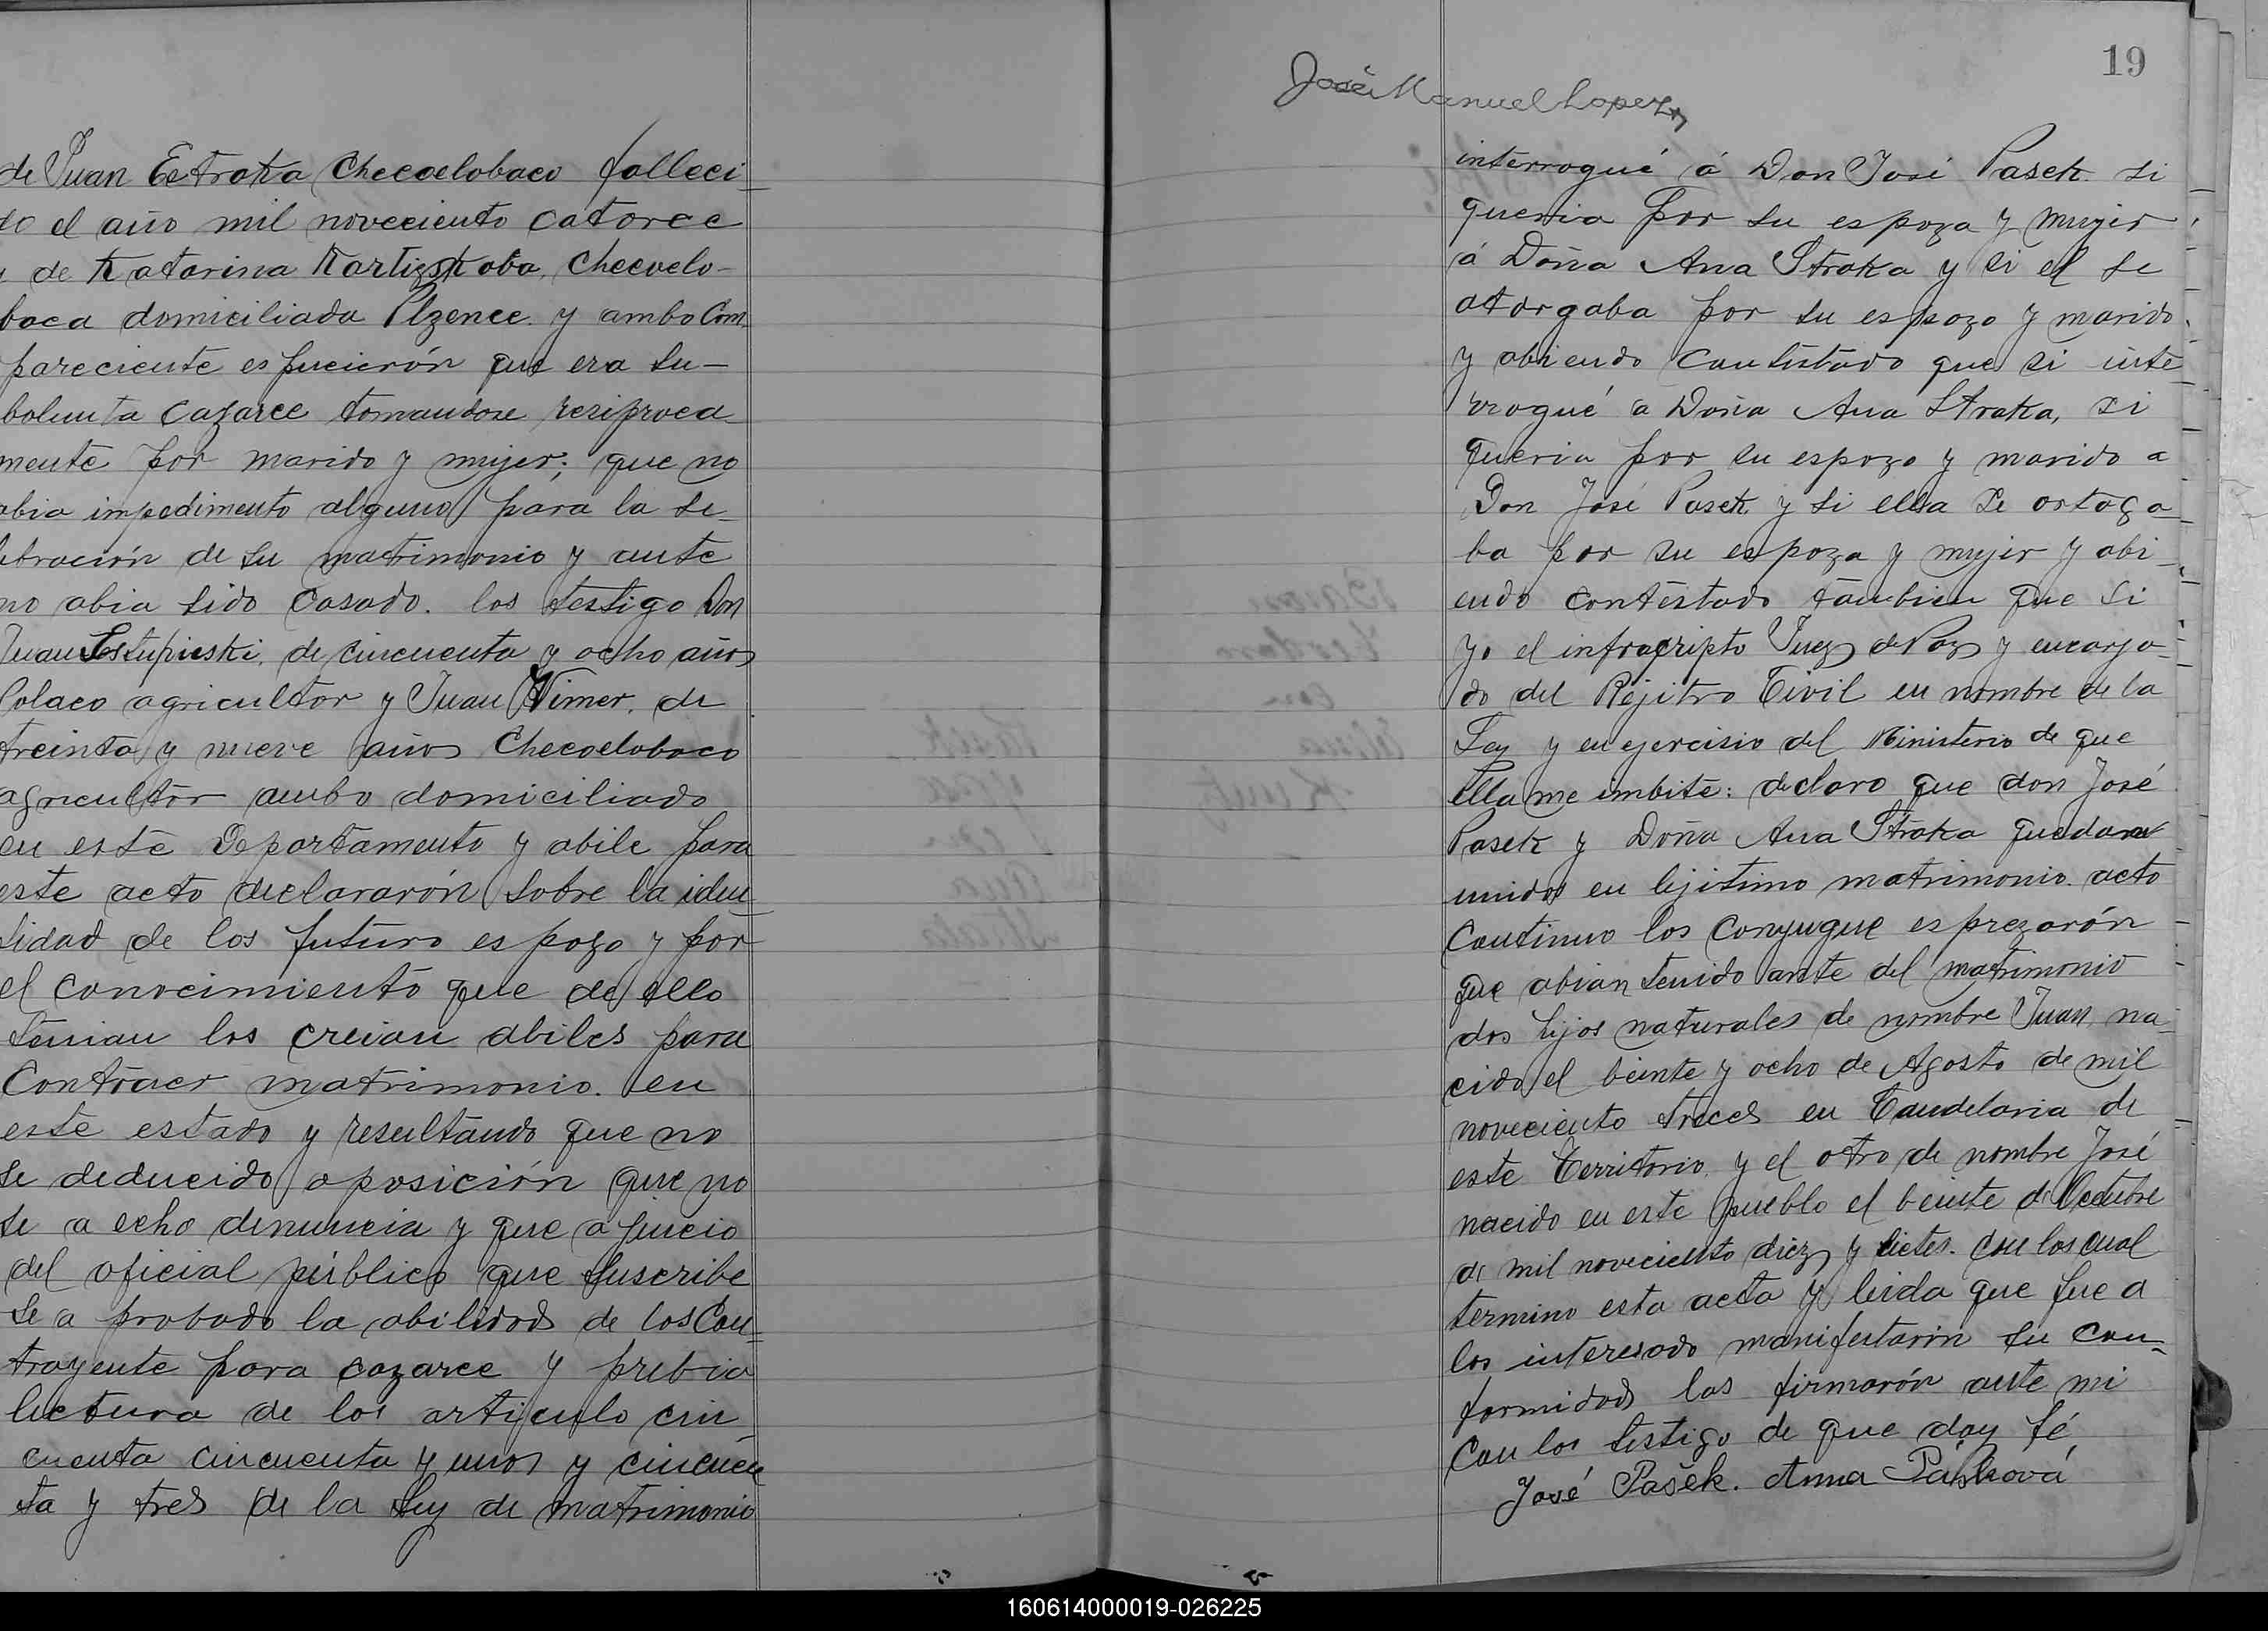 de Juan Estraka Checoelobaco falleci-
do el año mil noveciento catorce
y de Katarina Kartizskoba, checoelo-
baca domiciliada Plzence y ambo Com-
pareciente espucierón que era su-
bolunta cazarce tomandose resiproca-
mente por marido y mujer; que no
abia impedimento alguno para la se-
lebración de su matrimonio y ante
no abia sido casado. los testigo Don
Juan Estupieski, de cincuenta y ocho años
Polaco agricultor y Juan Wimer, de
treinta y nueve años Checoelobaco
agricultor ambo domiciliado
en este Departamento y abile para
este acto declararón sobre la iden-
tidad de los futuro espozo y por
el conocimiento que de ello
tenian los creian abiles para
Contraer matrimonio. en
este estado y resultando que no
se deducido oposición que no
se a echo denuncia y que a juicio
del oficial público que suscribe
se a probado la abilidad de los Con-
trayente para cazarce y prebia
lectura de los articulo cin-
cuenta cincuenta y unos y cincuen
ta y tres de la Ley de matrimonio
19
José Manuel Lopez
interrogué á Don José Pasek si
queria por su espoza y mujer
á Doña Ana Straka y si el se
otorgaba por su espozo y marido
y abiendo contestado que si inte-
rrogué a Doña Ana Straka, si
queria por su espozo y marido a
Don José Pasek y si ella se ortoga-
ba por su espoza y mujer y abi-
endo contestado tambien que si
yo el infrascripto Juez de Paz y encarga-
do del Rejitro Civil en nombre de la
Ley y en ejercisio del Ministerio de que
ella me imbite: declaro que don José
Pasek y Doña Ana Straka quedan
unidos en lijitimo matrimonio. acto
Continuo los Conyugue esprezarón
que abian tenido ante del matrimonio
dos hijos naturales de nombre Juan, na-
cido el beinte y ocho de Agosto de mil
noveciento treces en Candelaria de
este Territorio, y el otro de nombre José
nacido en este pueblo el beinte de Octubre
de mil noveciento diez y sietes. con los cual
termino esta acta y leida que fue a
los interesado manifestarón su con-
formidad las firmarón ante mi
con los testigo de que doy fé
José Pašek. Anna Pašková
160614000019-026225